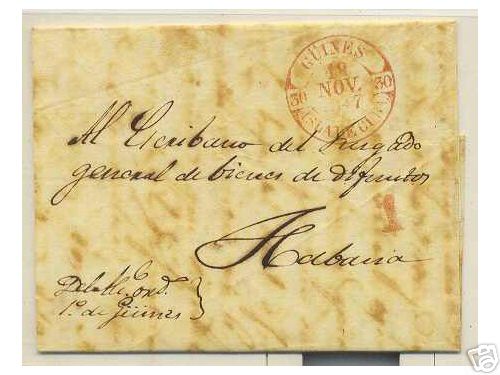 GÜINES
19
NOV.
30
30
ISLA DE CUBA
1
Al Escribano del Jusgado
general de bienes de difuntos
Habana
Del Alc. Ord.
1º de Güines